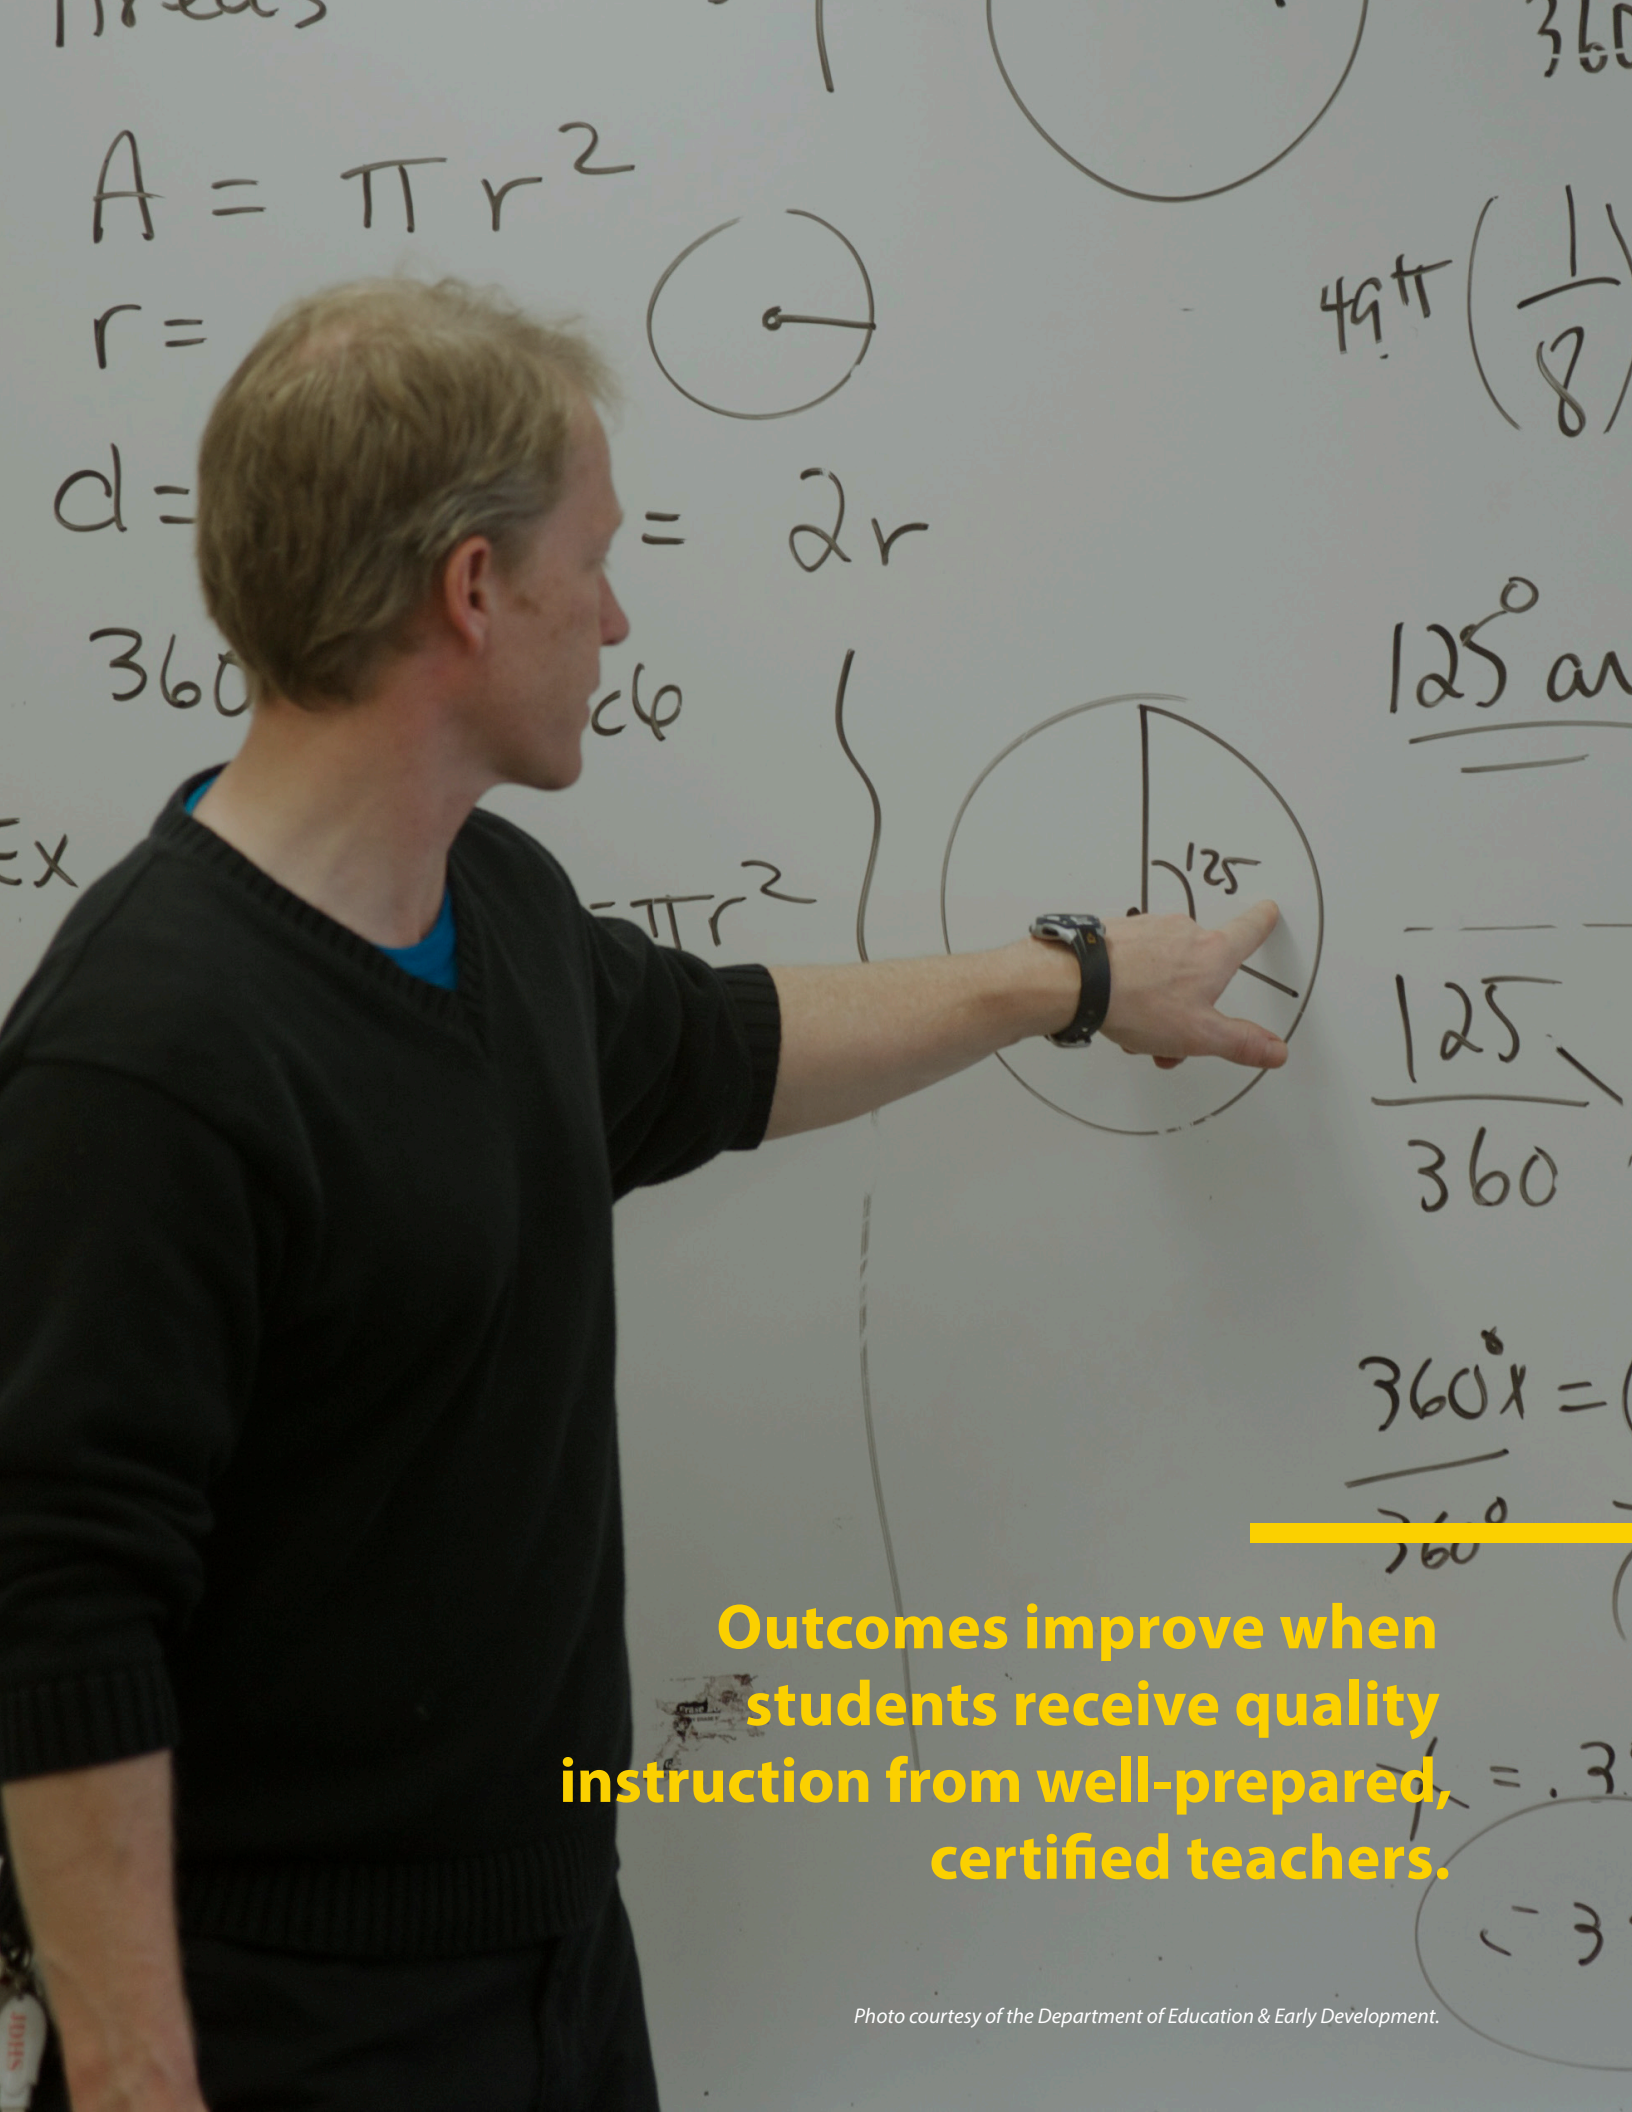 360
A = πr²
49π (1/8)
r =
d = = 2r
125° ar
360
125
Ex
= πr²
125
360
360°x = (
360°
Outcomes improve when
students receive quality
instruction from well-prepared,
certified teachers.
x = .3
= 3
Photo courtesy of the Department of Education & Early Development.
JDHS